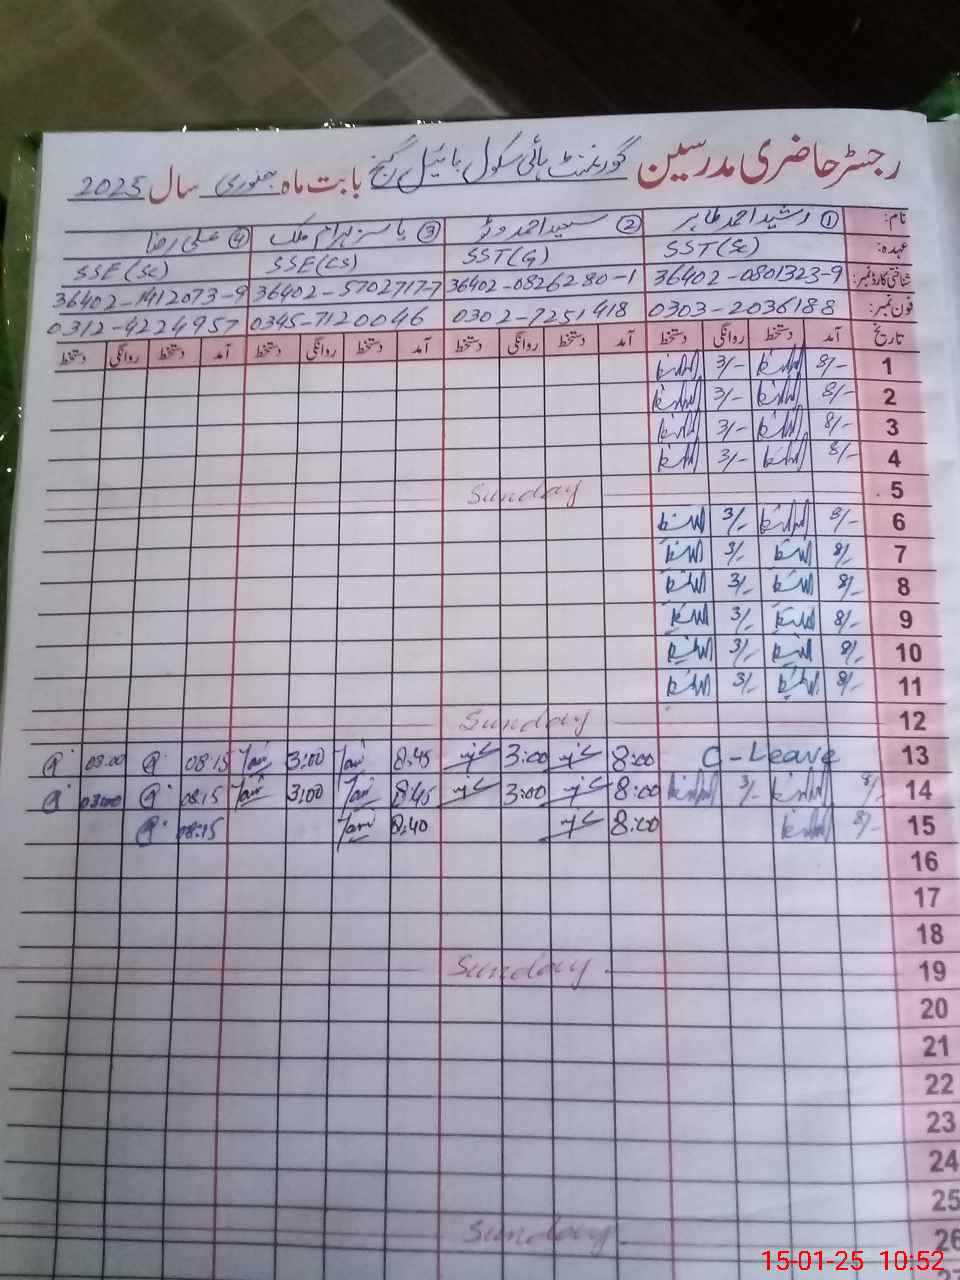 رجسٹر حاضری مدرسین گورنمنٹ ہائی سکول بائیل گنج بابت ماہ جنوری سال 2025
نام: ① رشید احمد طاہر ② سعید احمد وٹو ③ یاسر بہرام ملک ④ علی رضا
عہدہ: SST(Sc) SST(G) SSE(CS) SSE(Sc)
شناختی کارڈ نمبر: 36402-0801323-9 36402-0826280-1 36402-5702717-7 36402-1412073-9
فون نمبر: 0303-2036188 0302-7251418 0345-7120046 0312-4224957
تاریخ آمد دستخط روانگی دستخط آمد دستخط روانگی دستخط آمد دستخط روانگی دستخط آمد دستخط روانگی دستخط
1 8/- 3/-
2 8/- 3/-
3 8/- 3/-
4 8/- 3/-
5 Sunday
6 8/- 3/-
7 8/- 3/-
8 8/- 3/-
9 8/- 3/-
10 8/- 3/-
11 8/- 3/-
12 Sunday
13 C-Leave 8:00 3:00 8:45 3:00 08:15 03:00
14 8/- 3/- 8:00 3:00 8:45 3:00 08:15 03:00
15 8/- 8:00 8:40 08:15
16
17
18
19 Sunday
20
21
22
23
24
25
26 Sunday
15-01-25 10:52